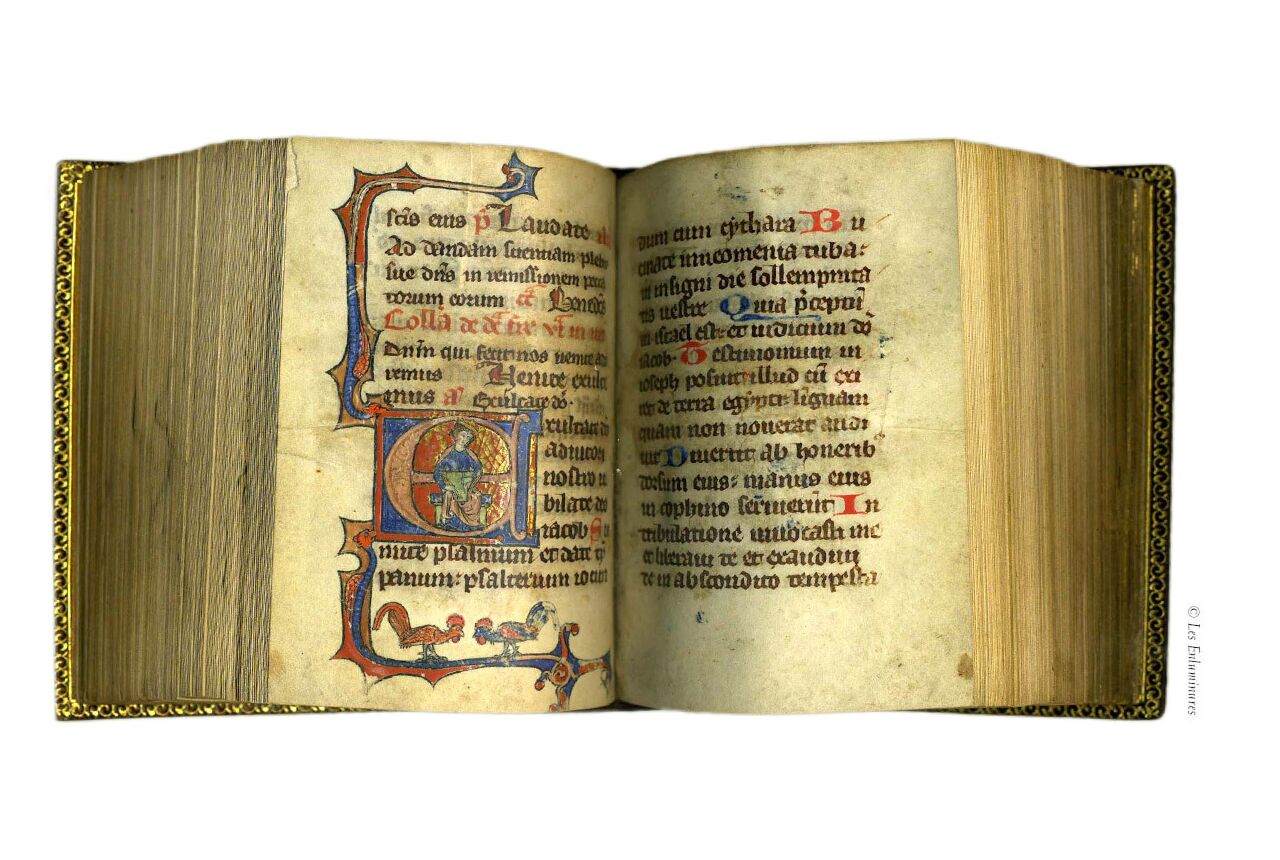 scis eius ps Laudate
Ad dandam scientiam plebi
sue dns in remissionem pecca
torum eorum Benedcs
Dnm qui fecit nos venite ad
remus Venite exulte
mus Exultate do
Exultate do
adiutori
nostro iu
bilate deo
iacob Su
mite psalmum et date tym
panum: psalterium iocun
dum cum cythara Bu
cinate in neomenia tuba:
in insigni die sollempnita
tis uestre Quia pceptum
in israel est: et iudicium do
iacob Testimonium in
ioseph posuit illud cu exi
ret de terra egypti: linguam
quam non nouerat audi
uit Diuertit ab honerib
dorsum eius: manus eius
in cophino seruierut In
tribulatione inuocasti me
et liberaui te et exaudiui
te in abscondito tempesta
© Les Enluminures